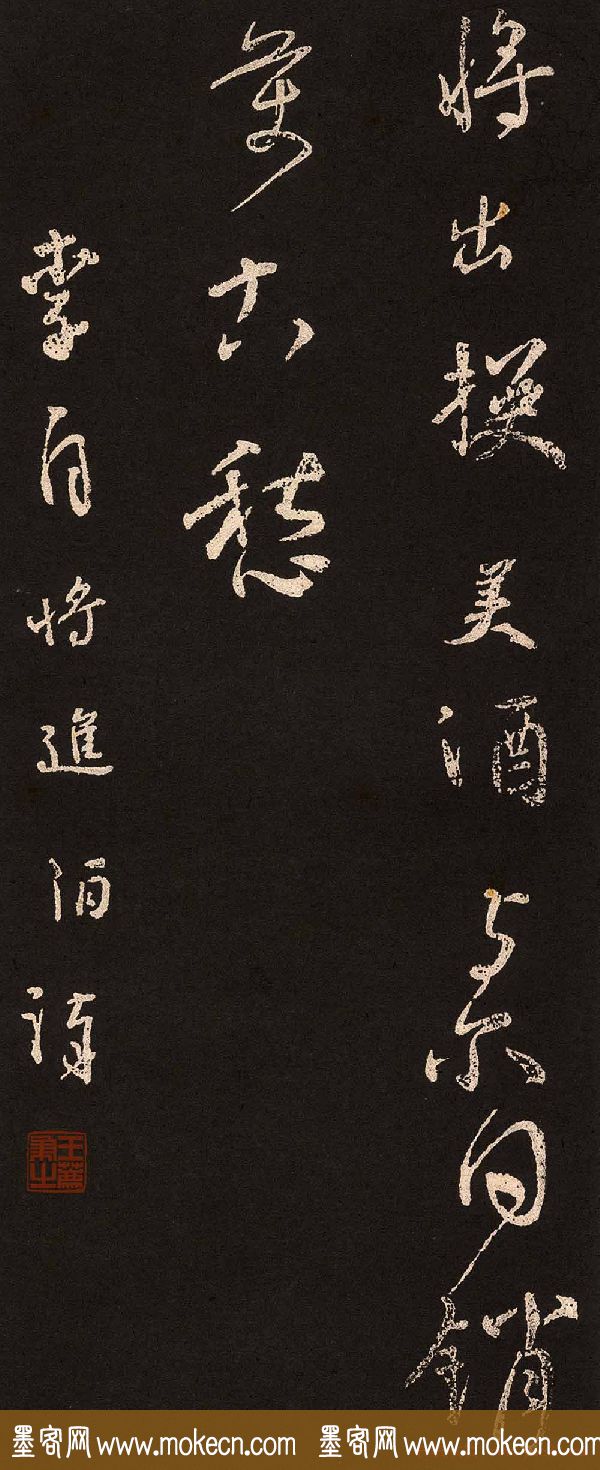 将出換美酒与尔同銷
萬古愁
李白将進酒詩
墨客网 www.mokecn.com 墨客网 www.mokecn.com